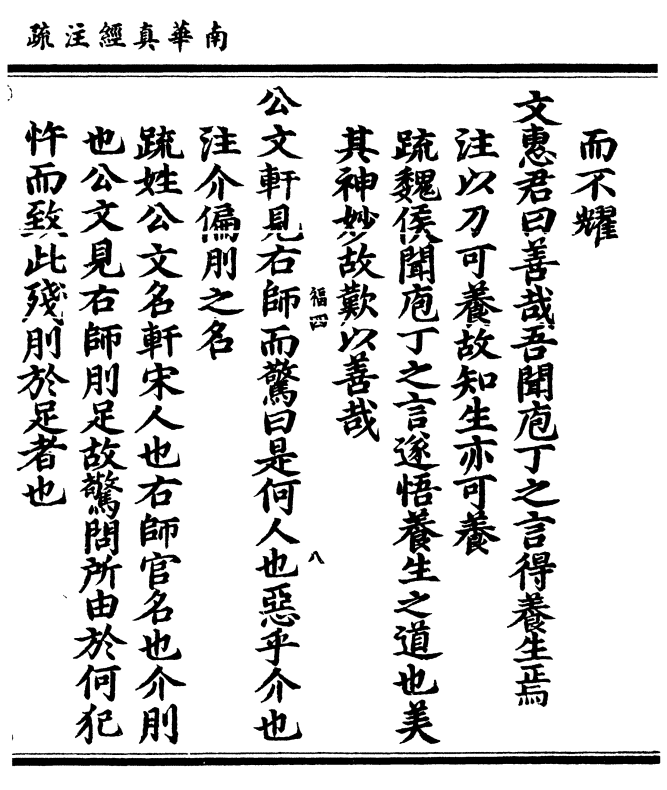 南華真經注疏
而不耀
文惠君曰善哉吾聞庖丁之言得養生焉
注以刀可養故知生亦可養
疏魏侯聞庖丁之言遂悟養生之道也美
其神妙故歎以善哉
福四
八
公文軒見右師而驚曰是何人也惡乎介也
注介偏刖之名
疏姓公文名軒宋人也右師官名也介刖
也公文見右師刖足故驚問所由於何犯
忤而致此殘刖於足者也